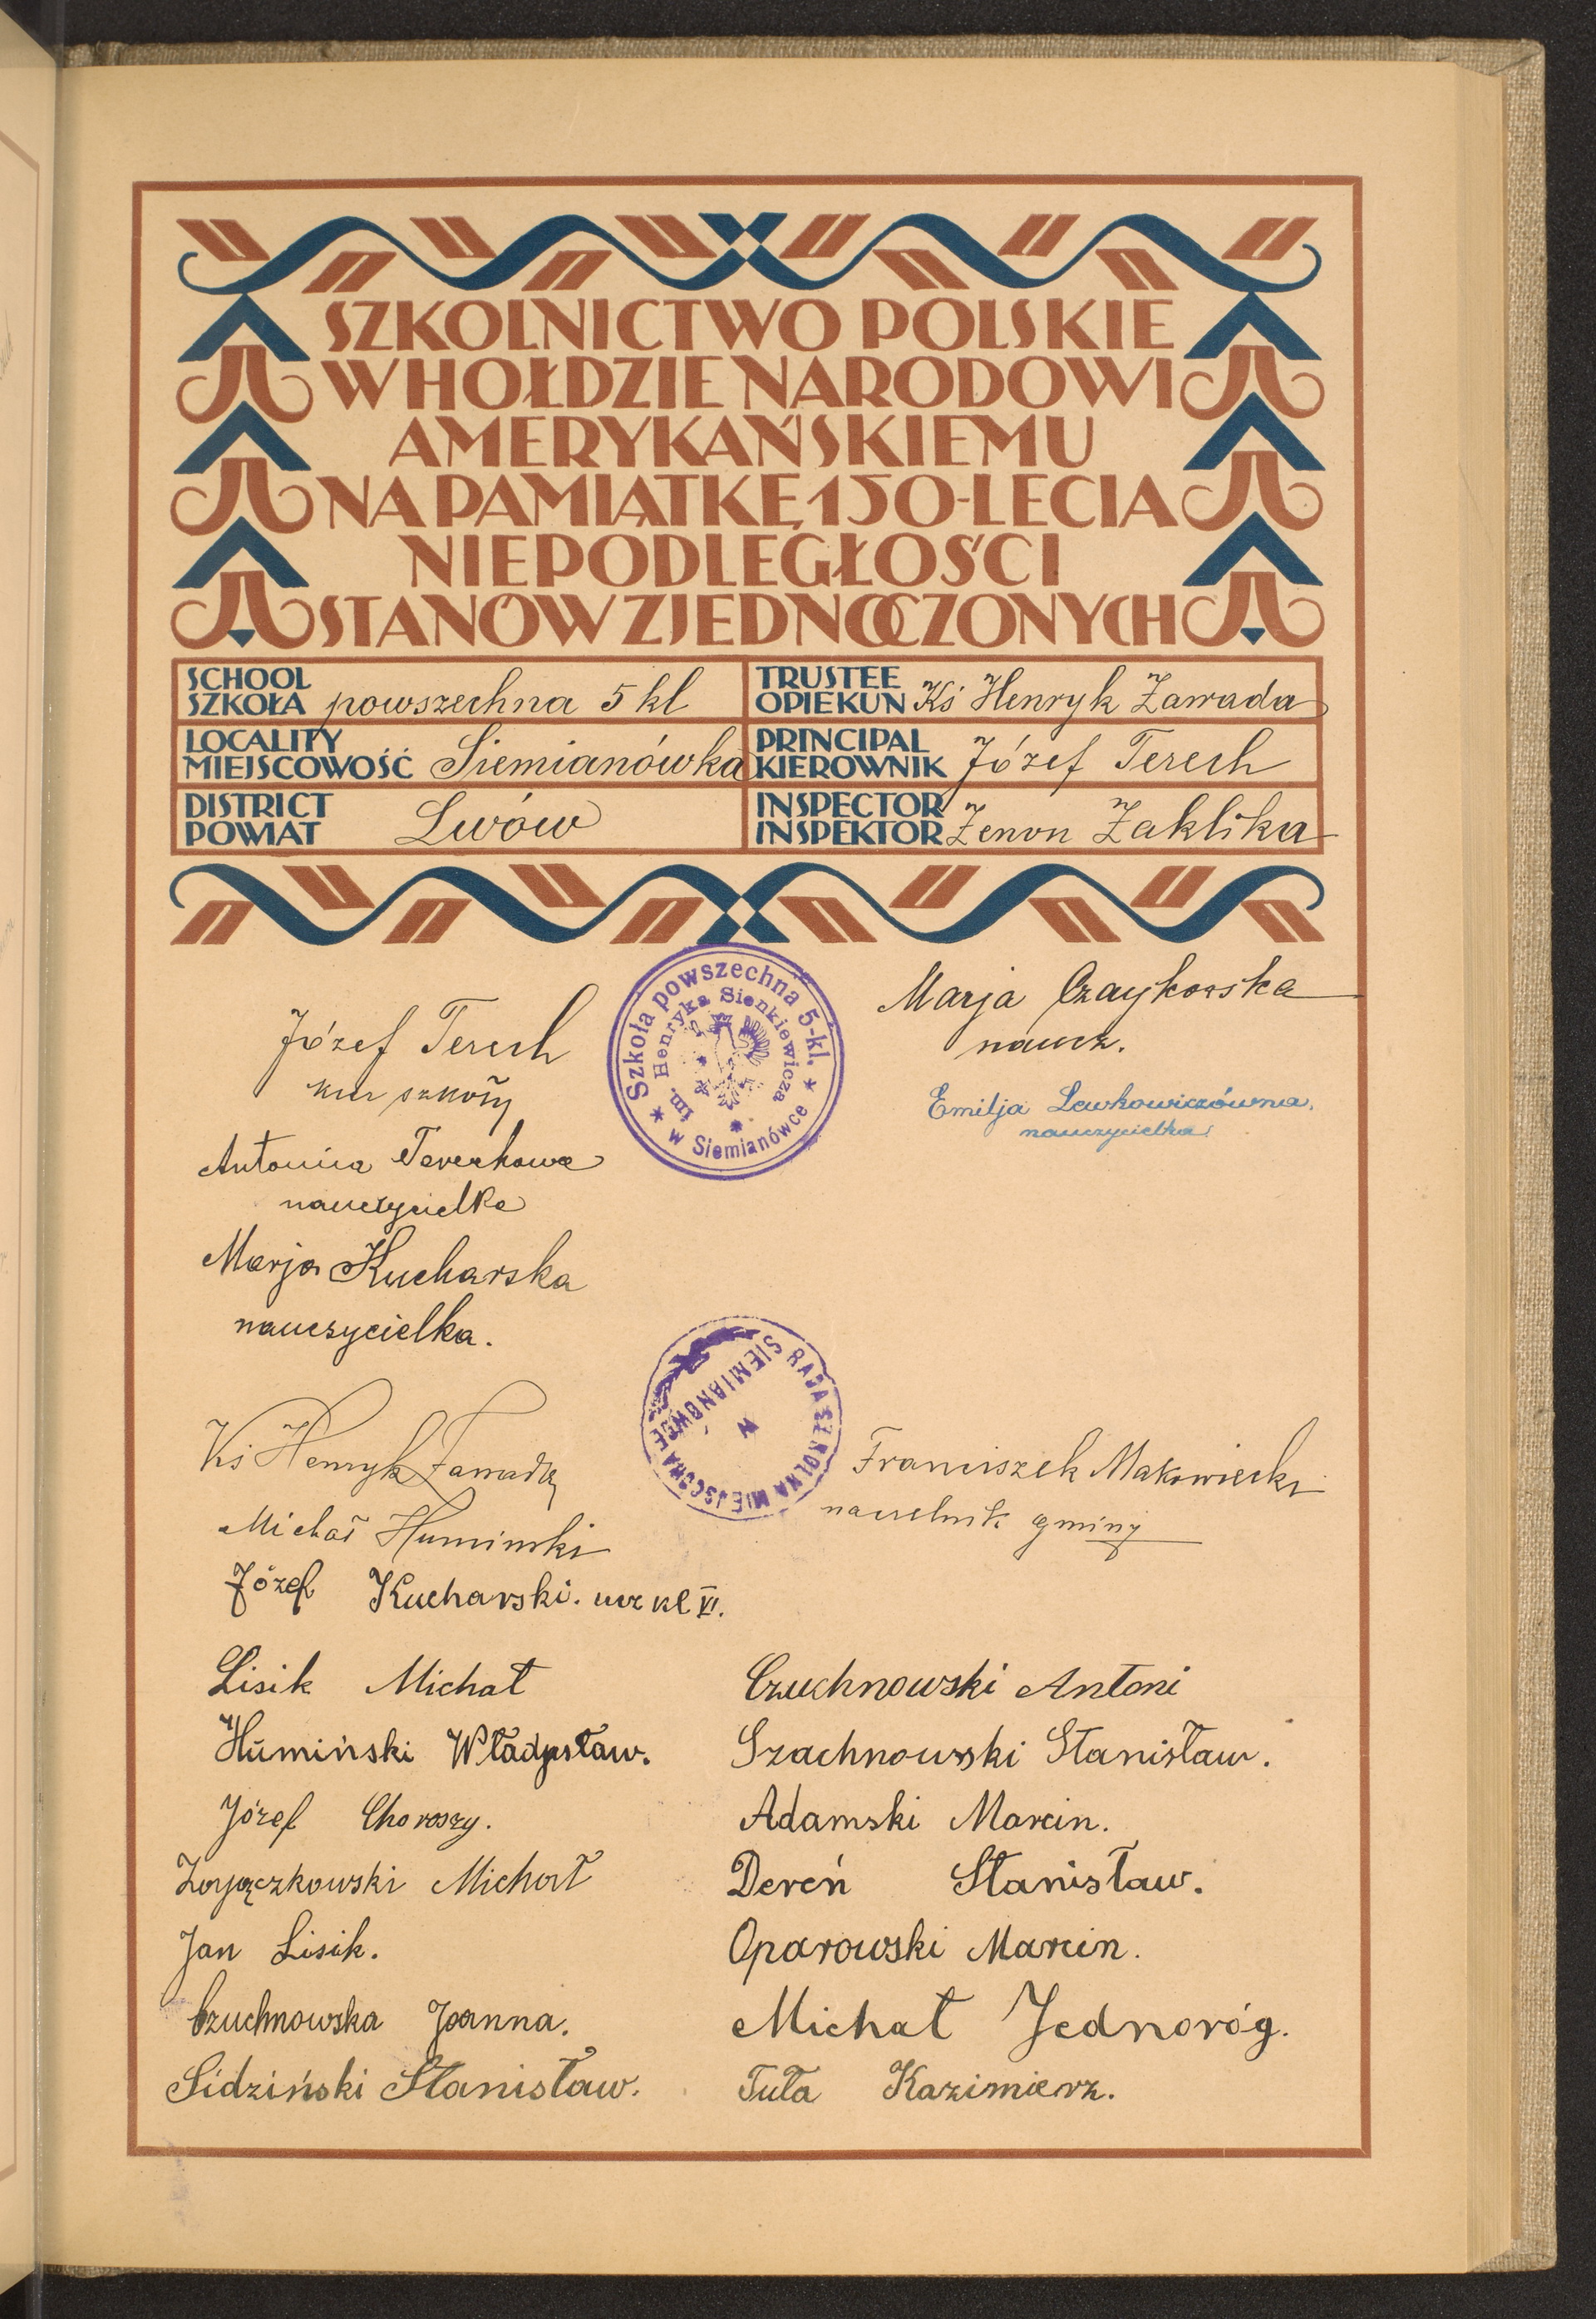 SZKOLNICTWO POLSKIE
W HOŁDZIE NARODOWI
AMERYKAŃSKIEMU
NA PAMIĄTKĘ 150-LECIA
NIEPODLEGŁOŚCI
STANÓW ZJEDNOCZONYCH
SCHOOL
SZKOŁA powszechna 5 kl
TRUSTEE
OPIEKUN Ks Henryk Zawada
LOCALITY
MIEJSCOWOŚĆ Siemianówka
PRINCIPAL
KIEROWNIK Józef Terech
DISTRICT
POWIAT Lwów
INSPECTOR
INSPEKTOR Zenon Zaklika
Szkoła powszechna 5-kl.
im. Henryka Sienkiewicza
w Siemianówce
Józef Terech
kier szkoły
Antonina Terechowa
nauczycielka
Marja Kucharska
nauczycielka.
Marja Czaykowska
naucz.
Emilja Lewkowiczówna.
nauczycielka.
RADA SZKOLNA MIEJSCOWA
W
SIEMIANÓWCE
Ks Henryk Zawada
Michał Humiński
Józef Kucharski. ucz kl VI.
Franciszek Makowiecki
naczelnik gminy
Lisik Michał
Humiński Władysław.
Józef Choroszy.
Zajączkowski Michał
Jan Lisik.
Czuchnowska Joanna.
Sidziński Stanisław.
Czuchnowski Antoni
Szachnowski Stanisław.
Adamski Marcin.
Dereń Stanisław.
Oparowski Marcin.
Michał Jednoróg.
Tuła Kazimierz.